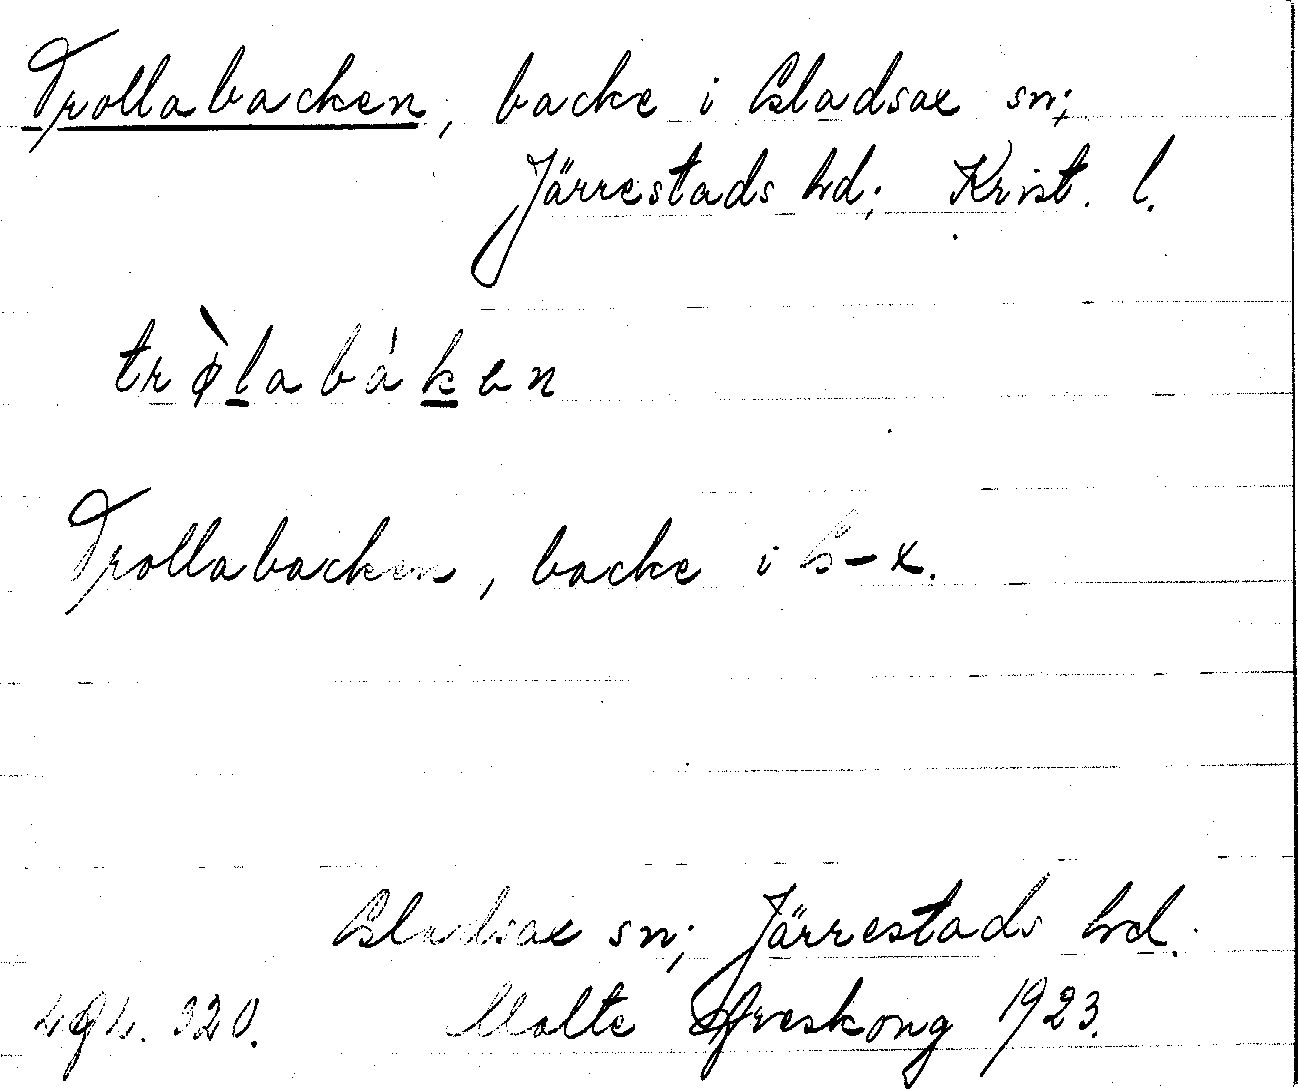 Trollabacken, backe i Gladsax sn;
Järrestads hd; Krist. l.
trø̀labákən
Trollabacken, backe i G-x.
Gladsax sn; Järrestads hd.
320. Malte Areskoug 1923.